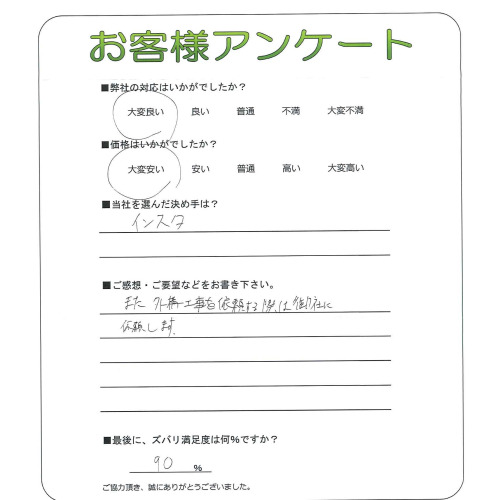 お客様アンケート
■弊社の対応はいかがでしたか？
大変良い 良い 普通 不満 大変不満
■価格はいかがでしたか？
大変安い 安い 普通 高い 大変高い
■当社を選んだ決め手は？
インスタ
■ご感想・ご要望などをお書き下さい。
また 外構工事を依頼する際は御社に
依頼します。
■最後に、ズバリ満足度は何%ですか？
90 %
ご協力頂き、誠にありがとうございました。